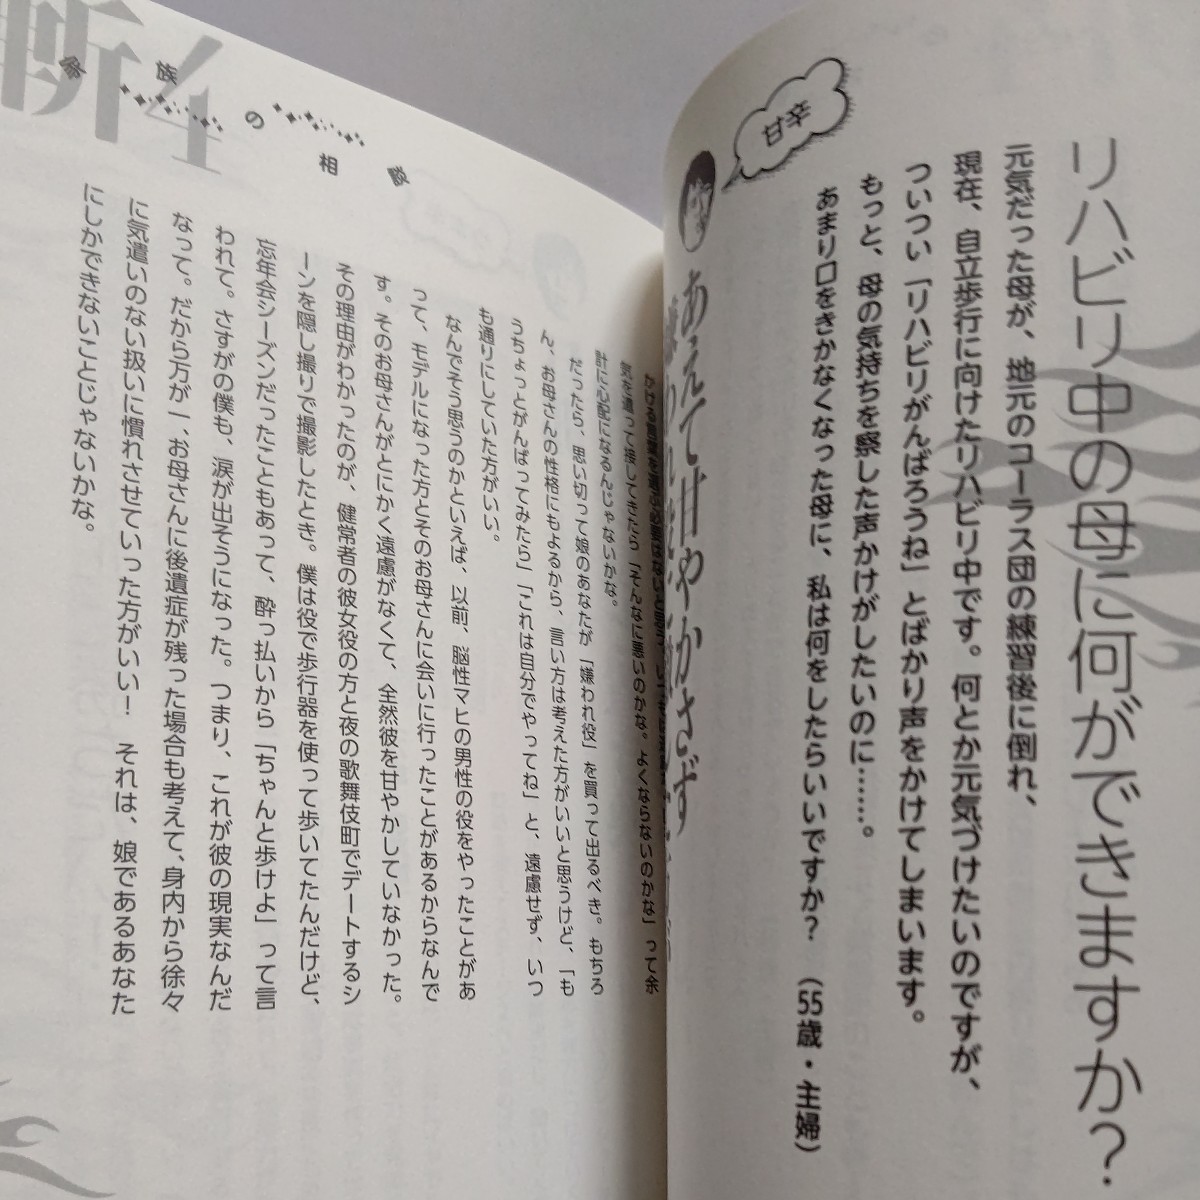 リハビリ中の母に何ができますか？
元気だった母が、地元のコーラス団の練習後に倒れ、
現在、自立歩行に向けたリハビリ中です。何とか元気づけたいのですが、
ついつい「リハビリがんばろうね」とばかり声をかけてしまいます。
もっと、母の気持ちを察した声かけがしたいのに……。
あまり口をきかなくなった母に、私は何をしたらいいですか？　（55歳・主婦）
甘辛
あえて甘やかさず
かける言葉を選ぶ必要はないと思う。
気を遣って接してきたら「そんなに悪いのかな。よくならないのかな」って余
計に心配になるんじゃないかな。
だったら、思い切って娘のあなたが「嫌われ役」を買って出るべき。もちろ
ん、お母さんの性格にもよるから、言い方は考えた方がいいと思うけど、「も
うちょっとがんばってみたら」「これは自分でやってね」と、遠慮せず、いつ
も通りにしていた方がいい。
なんでそう思うのかといえば、以前、脳性マヒの男性の役をやったことがあ
って、モデルになった方とそのお母さんに会いに行ったことがあるからなんで
す。そのお母さんがとにかく遠慮がなくて、全然彼を甘やかしていなかった。
その理由がわかったのが、健常者の彼女役の方と夜の歌舞伎町でデートするシ
ーンを隠し撮りで撮影したとき。僕は役で歩行器を使って歩いてたんだけど、
忘年会シーズンだったこともあって、酔っ払いから「ちゃんと歩けよ」って言
われて。さすがの僕も、涙が出そうになった。つまり、これが彼の現実なんだ
なって。だから万が一、お母さんに後遺症が残った場合も考えて、身内から徐々
に気遣いのない扱いに慣れさせていった方がいい！　それは、娘であるあなた
にしかできないことじゃないかな。
家族の相談
斬4